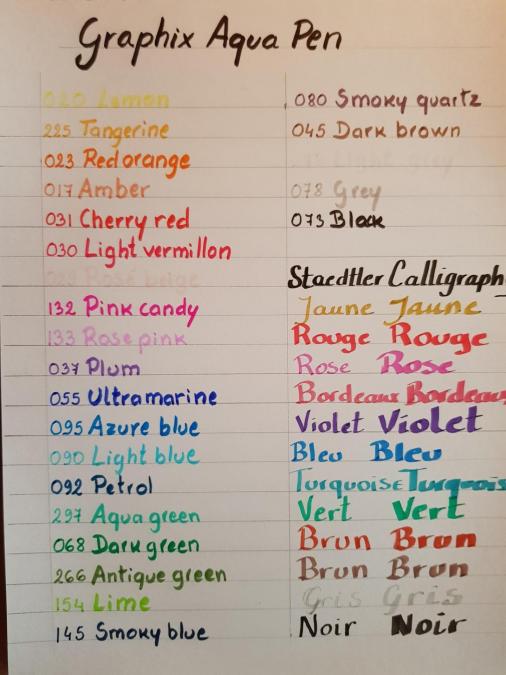 Graphix Aqua Pen
020 Lemon
225 Tangerine
023 Redorange
017 Amber
031 Cherry red
030 Light vermillon
029 Rosé beige
132 Pink candy
133 Rose pink
037 Plum
055 Ultramarine
095 Azure blue
090 Light blue
092 Petrol
297 Aqua green
068 Dark green
266 Antique green
154 Lime
145 Smoky blue
080 Smoky quartz
045 Dark brown
Light grey
078 Grey
073 Black
Staedtler Calligraph
Jaune Jaune
Rouge Rouge
Rose Rose
Bordeaux Bordeaux
Violet Violet
Bleu Bleu
Turquoise Turquois
Vert Vert
Brun Brun
Brun Brun
Gris Gris
Noir Noir